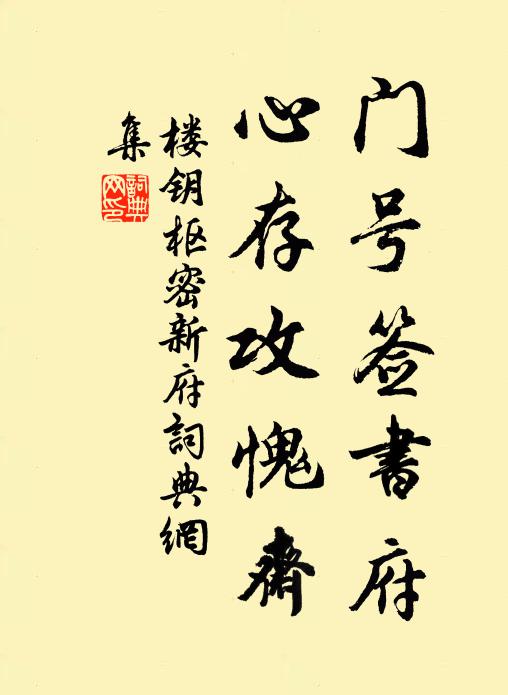 门号签书府
心存攻愧斋
楼钥枢密新府詞典網
集
詞典
网印